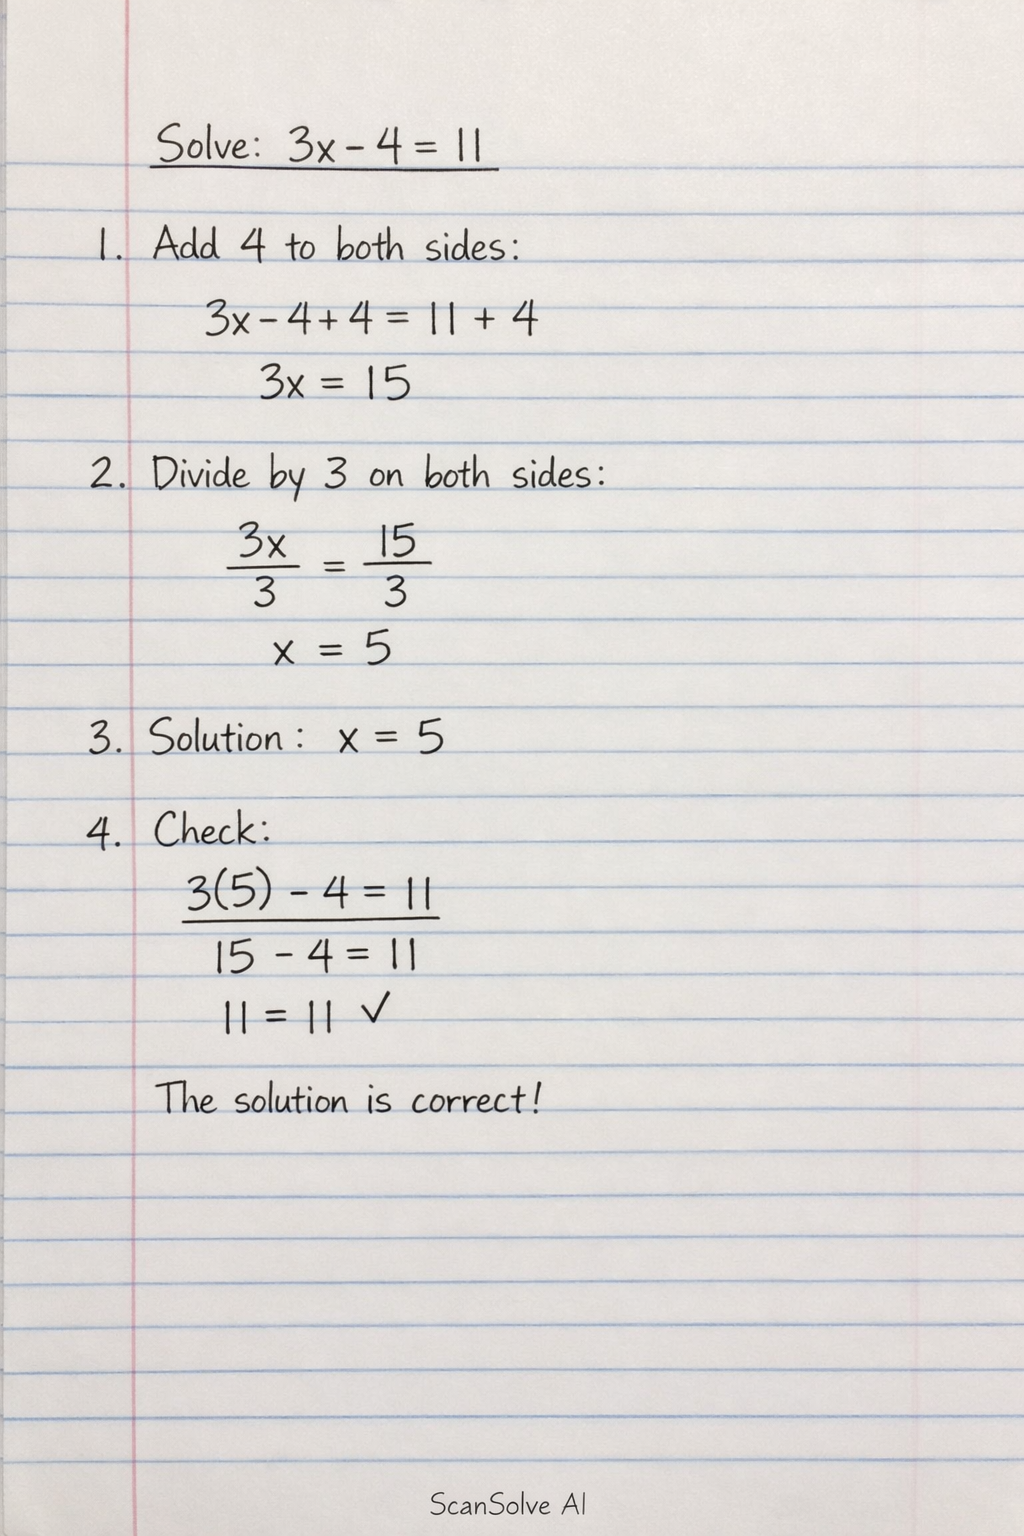 Solve: 3x - 4 = 11
1. Add 4 to both sides:
3x - 4 + 4 = 11 + 4
3x = 15
2. Divide by 3 on both sides:
3x/3 = 15/3
x = 5
3. Solution: x = 5
4. Check:
3(5) - 4 = 11
15 - 4 = 11
11 = 11 ✓
The solution is correct!
ScanSolve AI